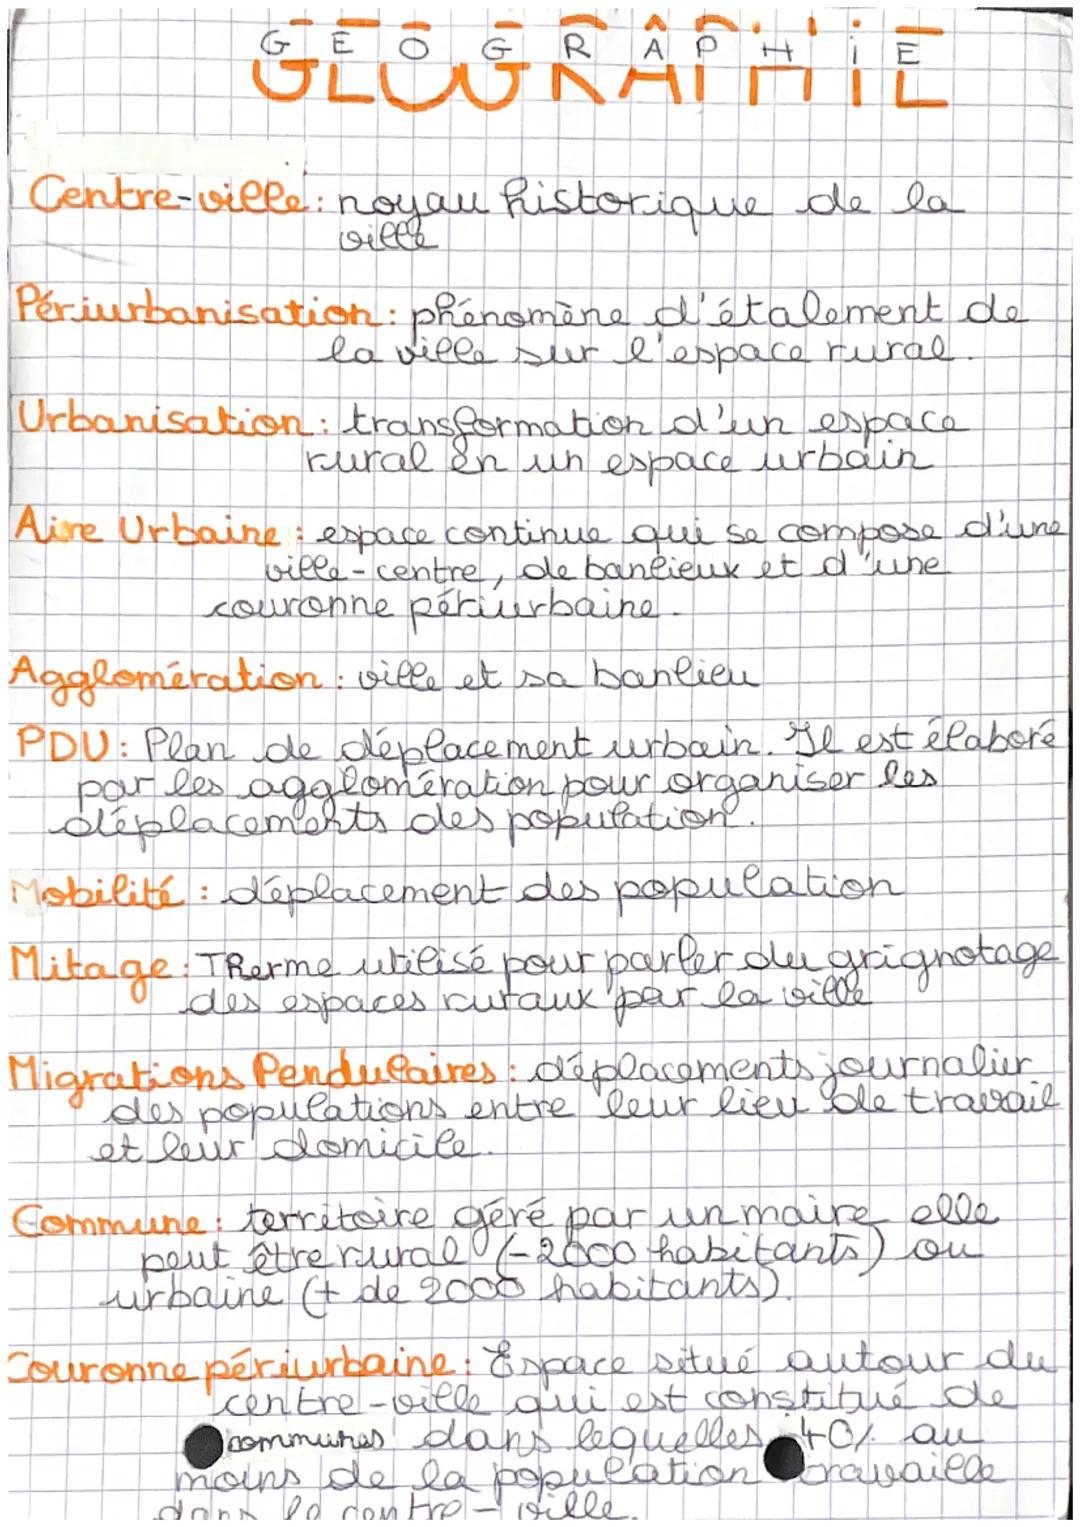 GEOGRAPHIE
Centre-ville: noyau historique de la
ville
Périurbanisation: phénomène d'étalement de
la ville sur l'espace rural.
Urbanisation: transformation d'un espace
rural en un espace urbain
Aire Urbaine: espace continue qui se compose d'une
ville-centre, de banlieux et d'une
couronne périurbaine.
Agglomération: ville et sa banlieu
PDU: Plan de déplacement urbain. Il est élaboré
par les agglomération pour organiser les
déplacements des population.
Mobilité: déplacement des population
Mitage: Therme utilisé pour parler du grignotage
des espaces ruraux par la ville
Migrations Pendulaires: déplacements journalier
des populations entre leur lieu de travail
et leur domicile.
Commune: territoire géré par un maire elle
peut être rural (-2000 habitants) ou
urbaine (+ de 2000 habitants).
Couronne périurbaine: Espace situé autour du
centre-ville qui est constitué de
communes dans lequelles 40% au
moins de la population travaille
dans le centre-ville.